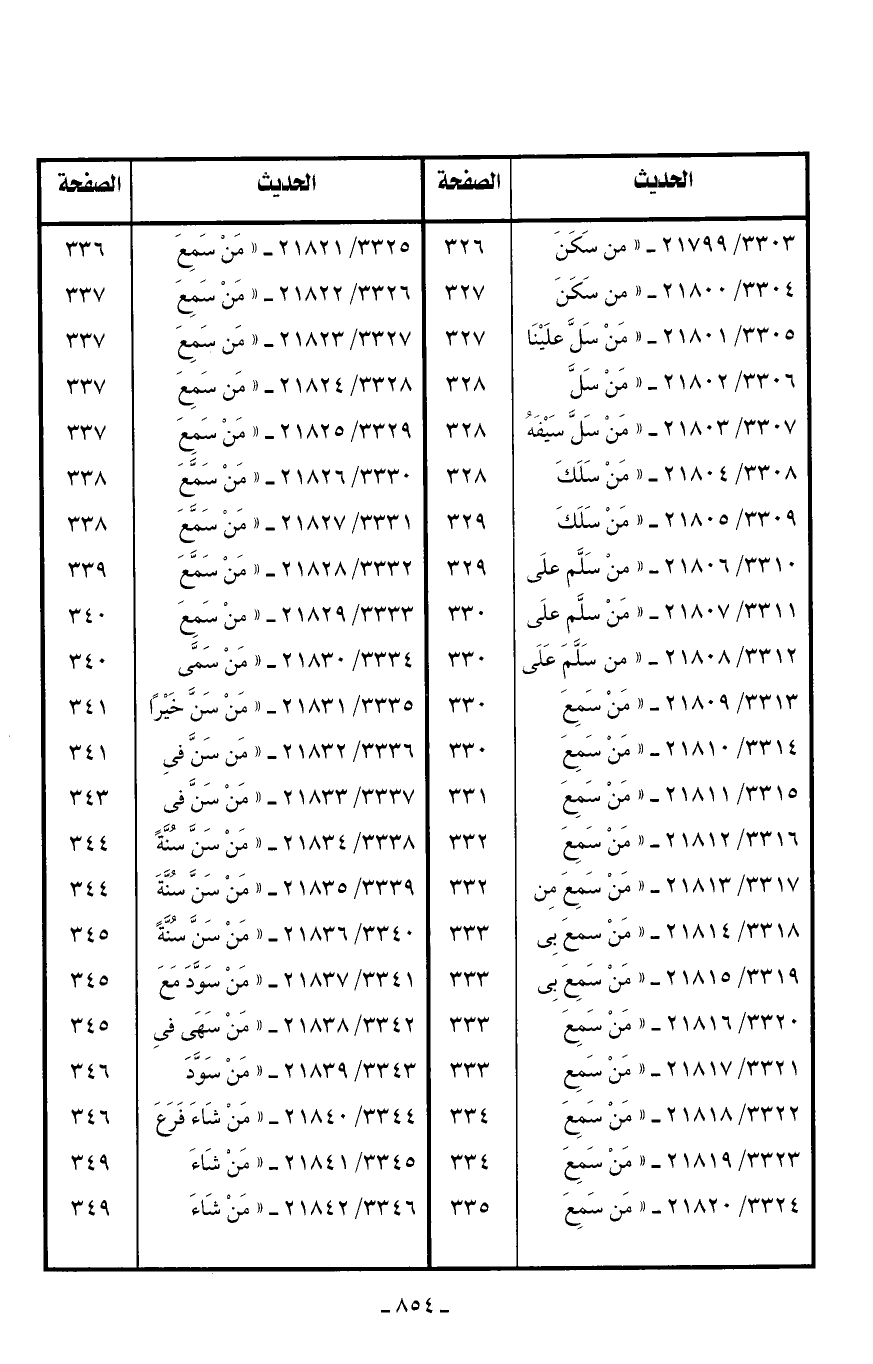 الحديث الصفحة الحديث الصفحة
٣٣٠٣/ ٢١٧٩٩ ـ « من سَكَنَ ٣٢٦ ٣٣٢٥/ ٢١٨٢١ ـ « مَنْ سَمِعَ ٣٣٦
٣٣٠٤/ ٢١٨٠٠ ـ « من سكَنَ ٣٢٧ ٣٣٢٦/ ٢١٨٢٢ ـ « مَنْ سَمِعَ ٣٣٧
٣٣٠٥/ ٢١٨٠١ ـ « مَنْ سَلَّ علَيْنَا ٣٢٧ ٣٣٢٧/ ٢١٨٢٣ ـ « مَن سَمِعَ ٣٣٧
٣٣٠٦/ ٢١٨٠٢ ـ « مَنْ سَلَّ ٣٢٨ ٣٣٢٨/ ٢١٨٢٤ ـ « مَن سَمِعَ ٣٣٧
٣٣٠٧/ ٢١٨٠٣ ـ « مَنْ سَلَّ سَيْفَهُ ٣٢٨ ٣٣٢٩/ ٢١٨٢٥ ـ « مَنْ سَمِعَ ٣٣٧
٣٣٠٨/ ٢١٨٠٤ ـ « مَنْ سَلَكَ ٣٢٨ ٣٣٣٠/ ٢١٨٢٦ ـ « مَنْ سَمَّعَ ٣٣٨
٣٣٠٩/ ٢١٨٠٥ ـ « مَنْ سَلَكَ ٣٢٩ ٣٣٣١/ ٢١٨٢٧ ـ « مَنْ سَمَّعَ ٣٣٨
٣٣١٠/ ٢١٨٠٦ ـ « مَنْ سَلَّم علَى ٣٢٩ ٣٣٣٢/ ٢١٨٢٨ ـ « مَنْ سَمَّعَ ٣٣٩
٣٣١١/ ٢١٨٠٧ ـ « مَنْ سلَّم علَى ٣٣٠ ٣٣٣٣/ ٢١٨٢٩ ـ « منْ سَمِعَ ٣٤٠
٣٣١٢/ ٢١٨٠٨ ـ « من سَلَّمَ عَلَى ٣٣٠ ٣٣٣٤/ ٢١٨٣٠ ـ « مَنْ سَمَّى ٣٤٠
٣٣١٣/ ٢١٨٠٩ ـ « مَنْ سَمِعَ ٣٣٠ ٣٣٣٥/ ٢١٨٣١ ـ « مَنْ سَنَّ خَيْرًا ٣٤١
٣٣١٤/ ٢١٨١٠ ـ « مَنْ سَمِعَ ٣٣٠ ٣٣٣٦/ ٢١٨٣٢ ـ « مَن سَنَّ فيِ ٣٤١
٣٣١٥/ ٢١٨١١ ـ « مَنْ سَمِعَ ٣٣١ ٣٣٣٧/ ٢١٨٣٣ ـ « مَنْ سَنَّ فى ٣٤٣
٣٣١٦/ ٢١٨١٢ ـ « مَنْ سَمِعَ ٣٣٢ ٣٣٣٨/ ٢١٨٣٤ ـ « مَنْ سَنَّ سُنَّةً ٣٤٤
٣٣١٧/ ٢١٨١٣ ـ « مَنْ سَمِعَ مِن ٣٣٢ ٣٣٣٩/ ٢١٨٣٥ ـ « مَنْ سَنَّ سُنَّةَ ٣٤٤
٣٣١٨/ ٢١٨١٤ ـ « مَنْ سمعَ بِى ٣٣٣ ٣٣٤٠/ ٢١٨٣٦ ـ « مَنْ سَنَّ سُنَّةً ٣٤٥
٣٣١٩/ ٢١٨١٥ ـ « مَنْ سَمِعَ بِى ٣٣٣ ٣٣٤١/ ٢١٨٣٧ ـ « مَنْ سَوَّدَ مَعَ ٣٤٥
٣٣٢٠/ ٢١٨١٦ ـ « مَنْ سَمِعَ ٣٣٣ ٣٣٤٢/ ٢١٨٣٨ ـ « مَنْ سَهَى فيِ ٣٤٥
٣٣٢١/ ٢١٨١٧ ـ « مَنْ سَمِع ٣٣٣ ٣٣٤٣/ ٢١٨٣٩ ـ « مَنْ سَوَّدَ ٣٤٦
٣٣٢٢/ ٢١٨١٨ ـ « مَنْ سَمِعَ ٣٣٤ ٣٣٤٤/ ٢١٨٤٠ ـ « مَنْ شَاءَ فَرَعَ ٣٤٦
٣٣٢٣/ ٢١٨١٩ ـ « مَنْ سَمِعَ ٣٣٤ ٣٣٤٥/ ٢١٨٤١ ـ « مَنْ شَاءَ ٣٤٩
٣٣٢٤/ ٢١٨٢٠ ـ « مَن سَمِعَ ٣٣٥ ٣٣٤٦/ ٢١٨٤٢ ـ « مَنْ شَاءَ ٣٤٩
ـ ٨٥٤ ـ